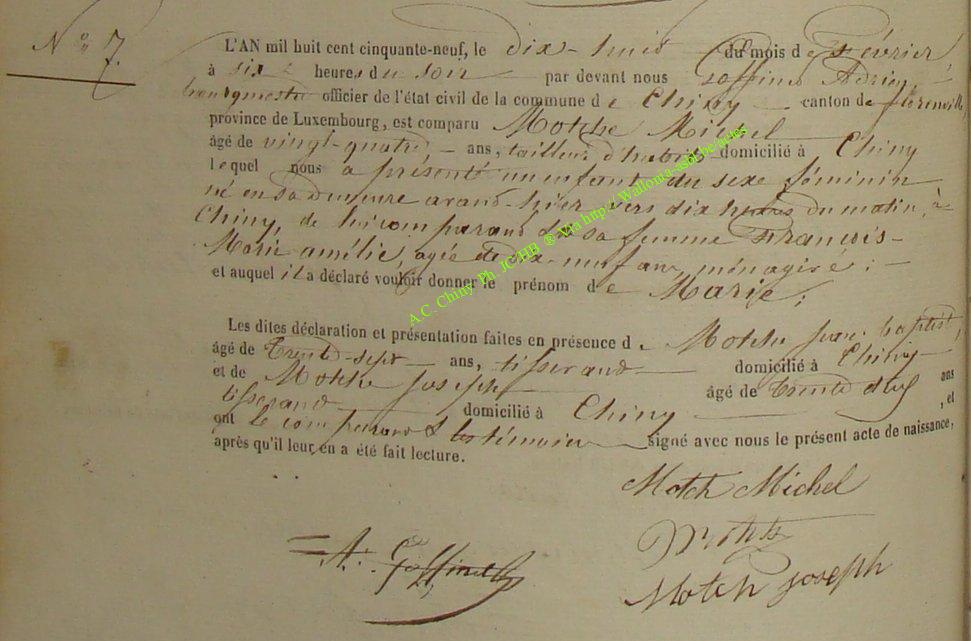 N° 7.
L'AN mil huit cent cinquante-neuf, le dix-huit du mois de février
à six heures du soir par devant nous Goffinet Adrien,
bourgmestre officier de l'état civil de la commune de Chiny canton de florenville,
province de Luxembourg, est comparu Motche Michel
âgé de vingt-quatre ans, tailleur d'habits domicilié à Chiny
lequel nous a présenté un enfant du sexe féminin
né en sa demeure avant-hier vers dix heures du matin, à
Chiny, de lui comparant de sa femme François-
Marie amélie, agée de dix-neuf ans, ménagère; -
et auquel il a déclaré vouloir donner le prénom de Marie;
Les dites déclaration et présentation faites en présence de Motche jean baptist,
âgé de trente-sept ans, tisserand domicilié à Chiny
et de Motche joseph âgé de trente ans
tisserand domicilié à Chiny, et
ont le comparant & les témoins signé avec nous le présent acte de naissance,
après qu'il leur en a été fait lecture.
Motch Michel
A. Goffinet
Motch joseph
A.C. Chiny Ph. JCHB ® Via http://Wallonia-asbl.be/actes